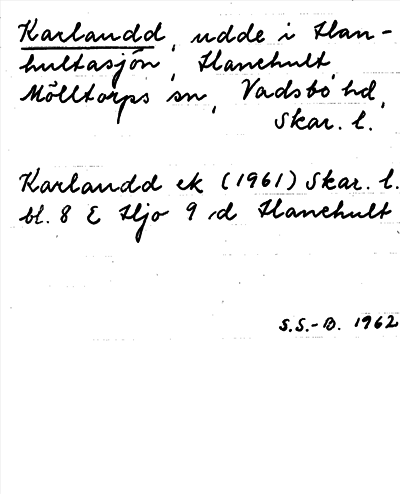 Karlaudd, udde i Han-
hultasjön, Hanehult,
Mölltorps sn, Vadsbo hd,
Skar. l.
Karlaudd ek (1961) Skar. l.
bl. 8 E Hjo 9 d Hanehult
S.S.-B. 1962